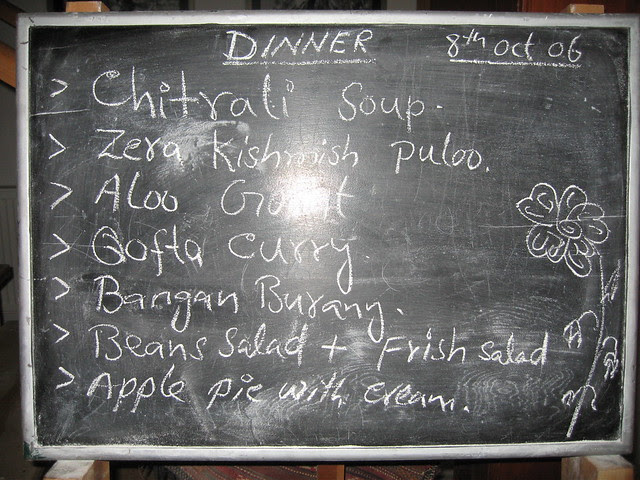 DINNER 8th oct 06
> Chitrali Soup.
> Zera Kishmish puloo.
> Aloo Gosht
> Qofta Curry.
> Bangan Burany.
> Beans Salad + Frish salad
> Apple pie with cream.